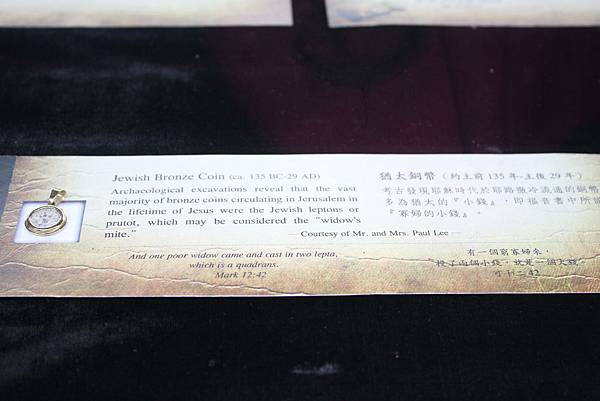 Jewish Bronze Coin (ca. 135 BC-29 AD)
Archaeological excavations reveal that the vast
majority of bronze coins circulating in Jerusalem in
the lifetime of Jesus were the Jewish leptons or
prutot, which may be considered the "widow's
mite."
— Courtesy of Mr. and Mrs. Paul Lee —
And one poor widow came and cast in two lepta,
which is a quadrans.
Mark 12:42
猶太銅幣（約主前135年-主後29年）
考古發現耶穌時代於耶路撒冷流通的銅幣
多為猶太的『小錢』，即福音書中所
『寡婦的小錢』。
有一個窮寡婦來，
投了兩個小錢，就是一個大錢。
可十二42